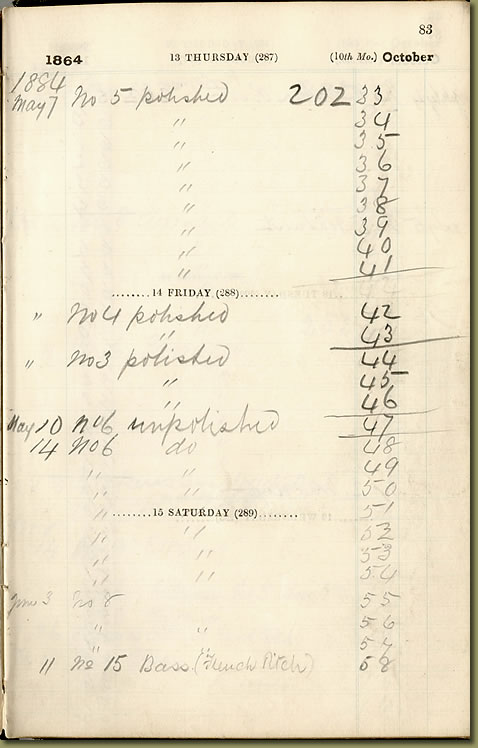 83
1864 13 THURSDAY (287) (10th Mo.) October
1884
May 7 No 5 polished 202 33
" 34
" 35
" 36
" 37
" 38
" 39
" 40
" 41
........14 FRIDAY (288)........
" No 4 polished 42
" 43
" No 3 polished 44
" 45
" 46
May 10 No 6 unpolished 47
14 No 6 do 48
" " 49
" " 50
" 51
........15 SATURDAY (289)........
" " 52
" " 53
" " 54
June 3 No 8 55
" " 56
" " 57
11 No 15 Bass (French Pitch) 58